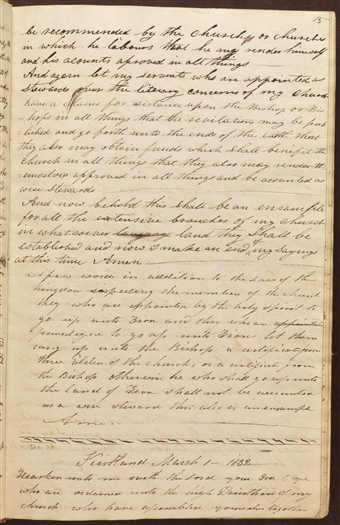 15
be recommended by the Church or Churches
in which he labours that he my render himself
and his acounts aproved in all things
And again let my servants who are appointed as
Stewards over the literary concerns of my Church
have a claim for assistance upon the Bishop or Bis
hops in all things that the revelations may be pub
lished and go forth unto the ends of the earth that
they also may obtain funds which shall benefit the
Church in all things that they also may render th
emselves approved in all things and be accounted as
wise Stewards
And now behold this shall be an ensample
for all the extensive branches of my church
in whatsoever land they shall be
established and now I make an end my Sayings
at this time Amen
A few words in addition to the Laws of the
kingdom respecting the members of the church
they who are appointed by the holy spirit to
go up unto Zion and they who are
privileged to go up unto Zion let them
carry up unto the Bishop a certificate from
three Elders of the Church or a certificate from
the Bishop otherwise he who shall go up unto
the land of Zion shall not be accounted
as a wise steward this also is an ensample
Amen
Kirtland March 1 — 1832
Hearken unto me saith the Lord your God
who are ordained unto the high Priesthood of my
church who have assembled yourselves together